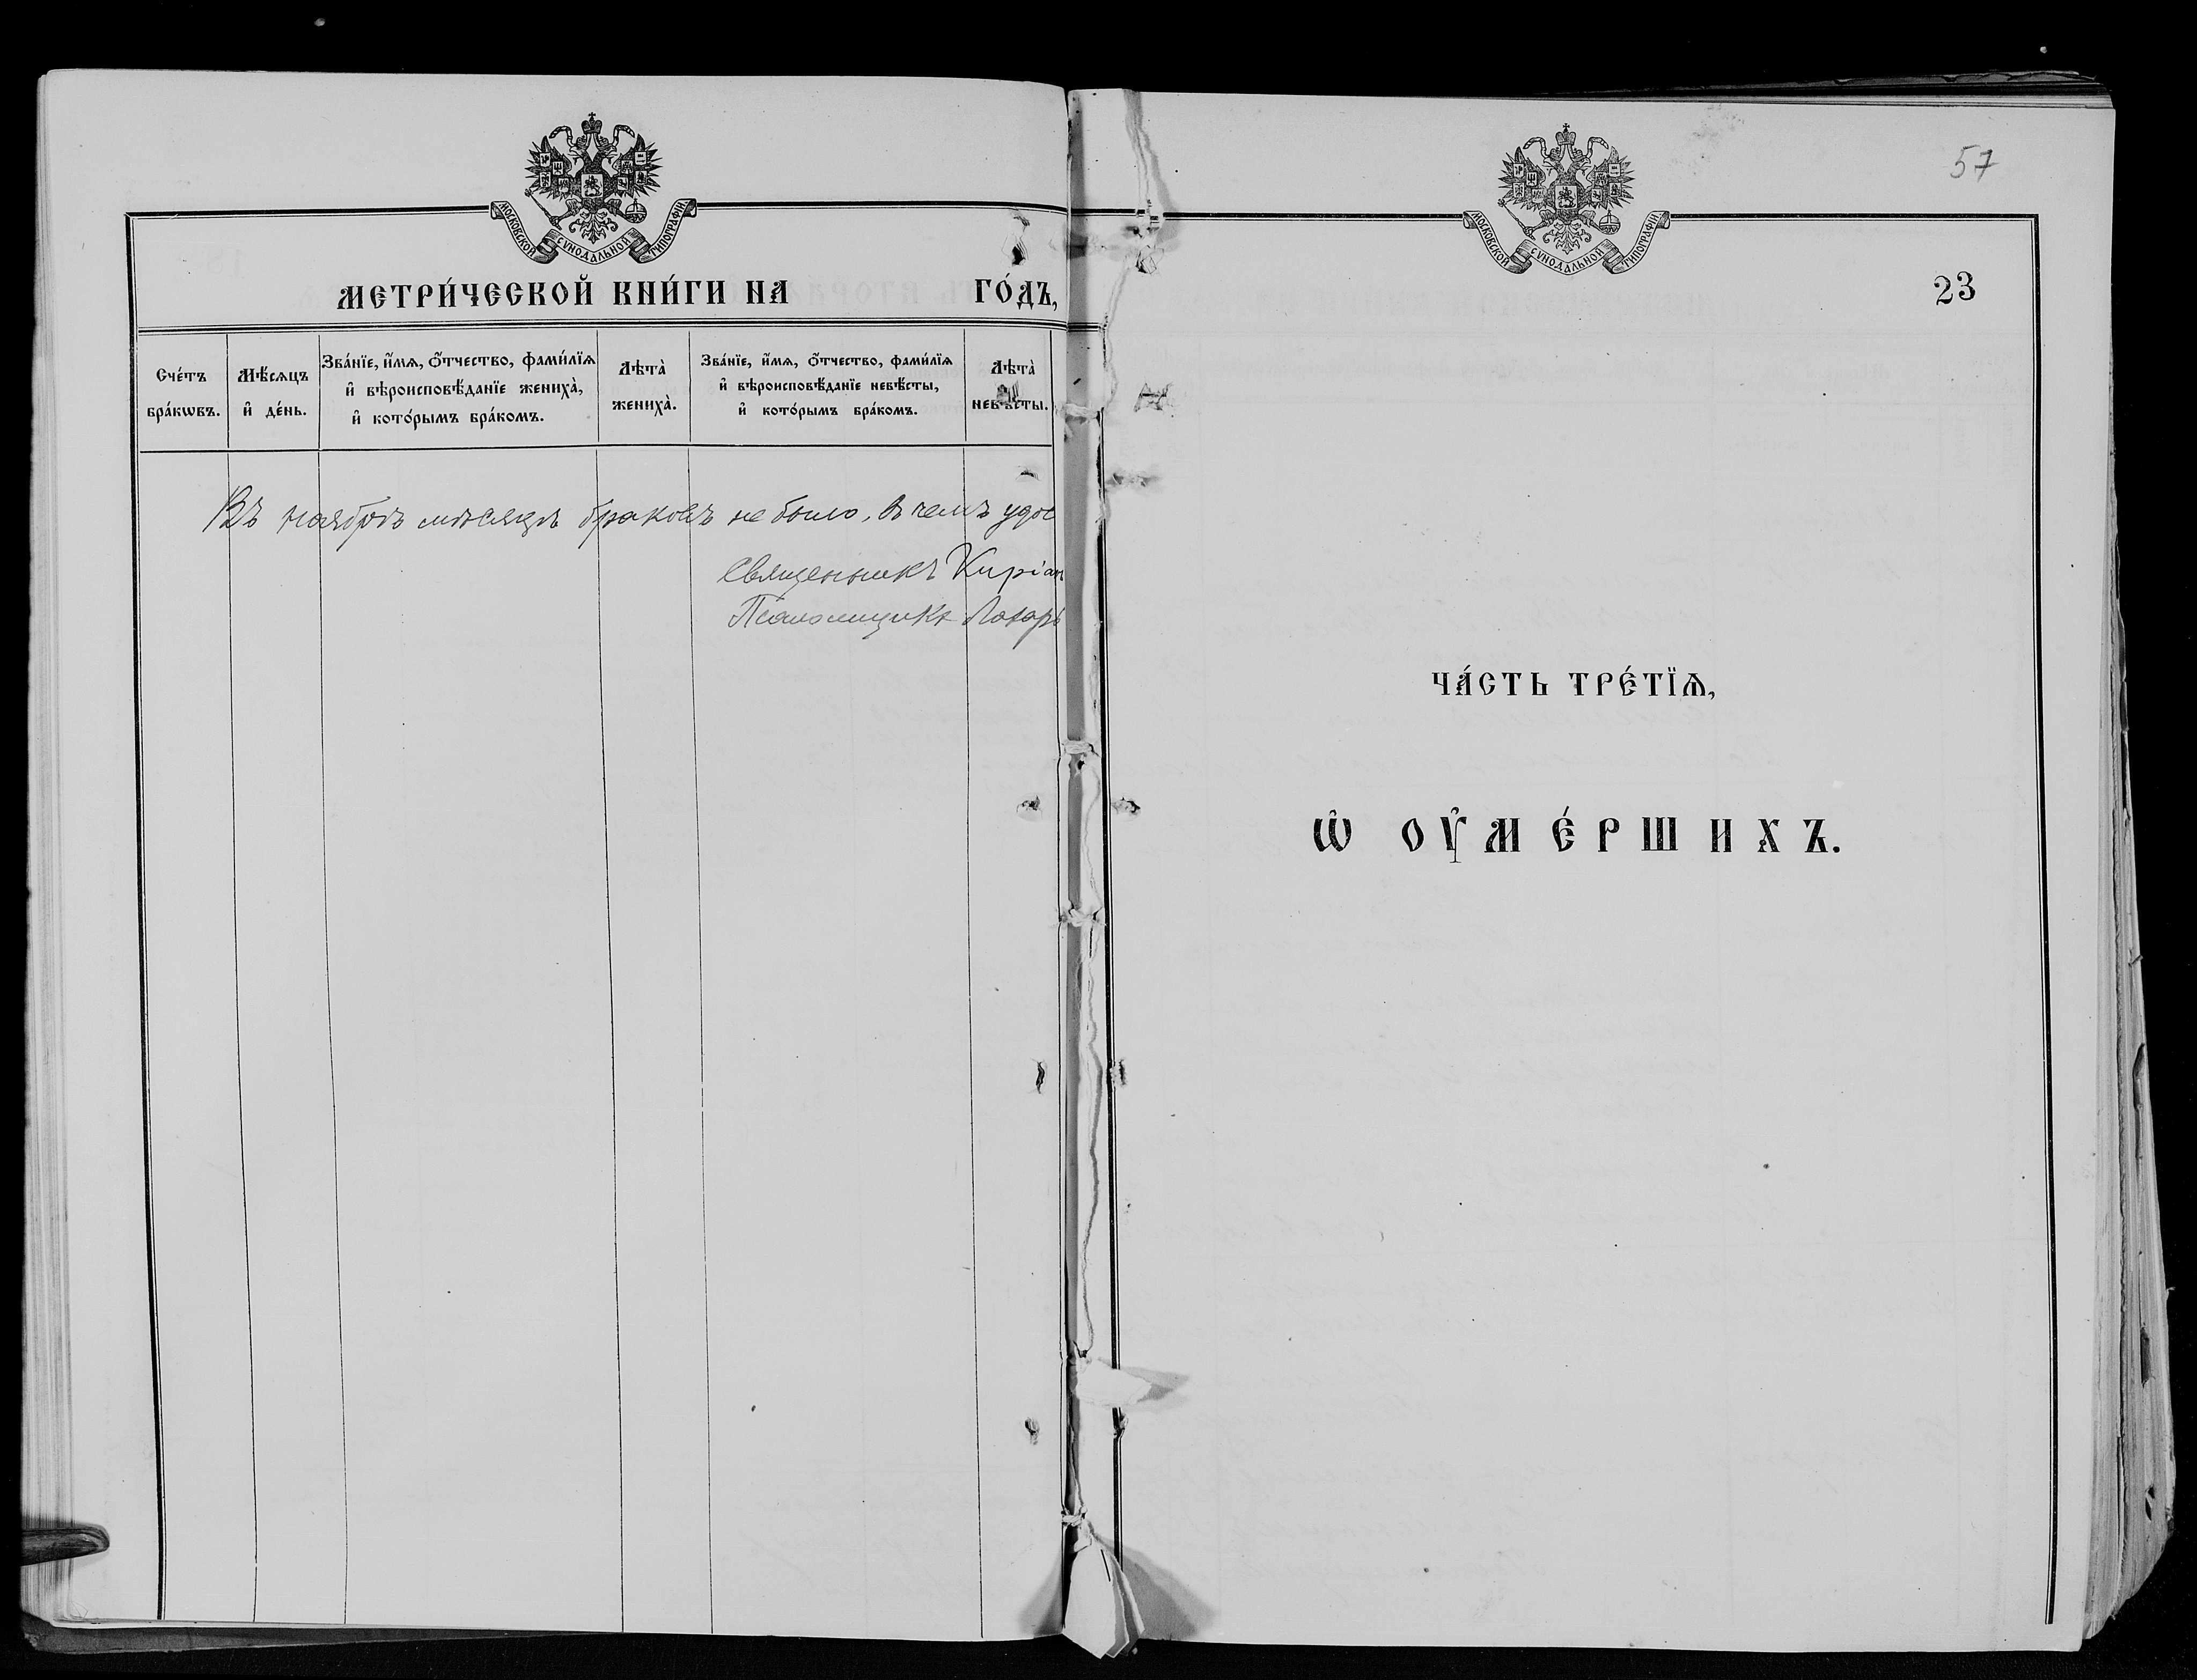 МОСКОВСКОЙ СѴНОДАЛЬНОЙ ТИПОГРАФІИ
МЕТРИ́ЧЕСКОЙ КНИ́ГИ НА ГО́ДЪ,
Сче́тъ бра́кѡвъ.
Мѣ́сяцъ и҆ де́нь.
Зва́нїе, и҆́мѧ, ѻ҆́тчество, фами́лїѧ
и҆ вѣроисповѣ́данїе жениха̀,
и҆ кото́рымъ бра́комъ.
Лѣта̀ жениха̀.
Зва́нїе, и҆́мѧ, ѻ҆́тчество, фами́лїѧ
и҆ вѣроисповѣ́данїе невѣ́сты,
и҆ кото́рымъ бра́комъ.
Лѣта̀ невѣ́сты.
Въ ноябрѣ мѣсяцѣ браковъ не было, въ чемъ удос
Священникъ Киріак
Псаломщикъ Лазарь
57
МОСКОВСКОЙ СѴНОДАЛЬНОЙ ТИПОГРАФІИ
23
ЧА́СТЬ ТРЕ́ТЇѦ,
Ѡ҆ ОУ҆МЕ́РШИХЪ.